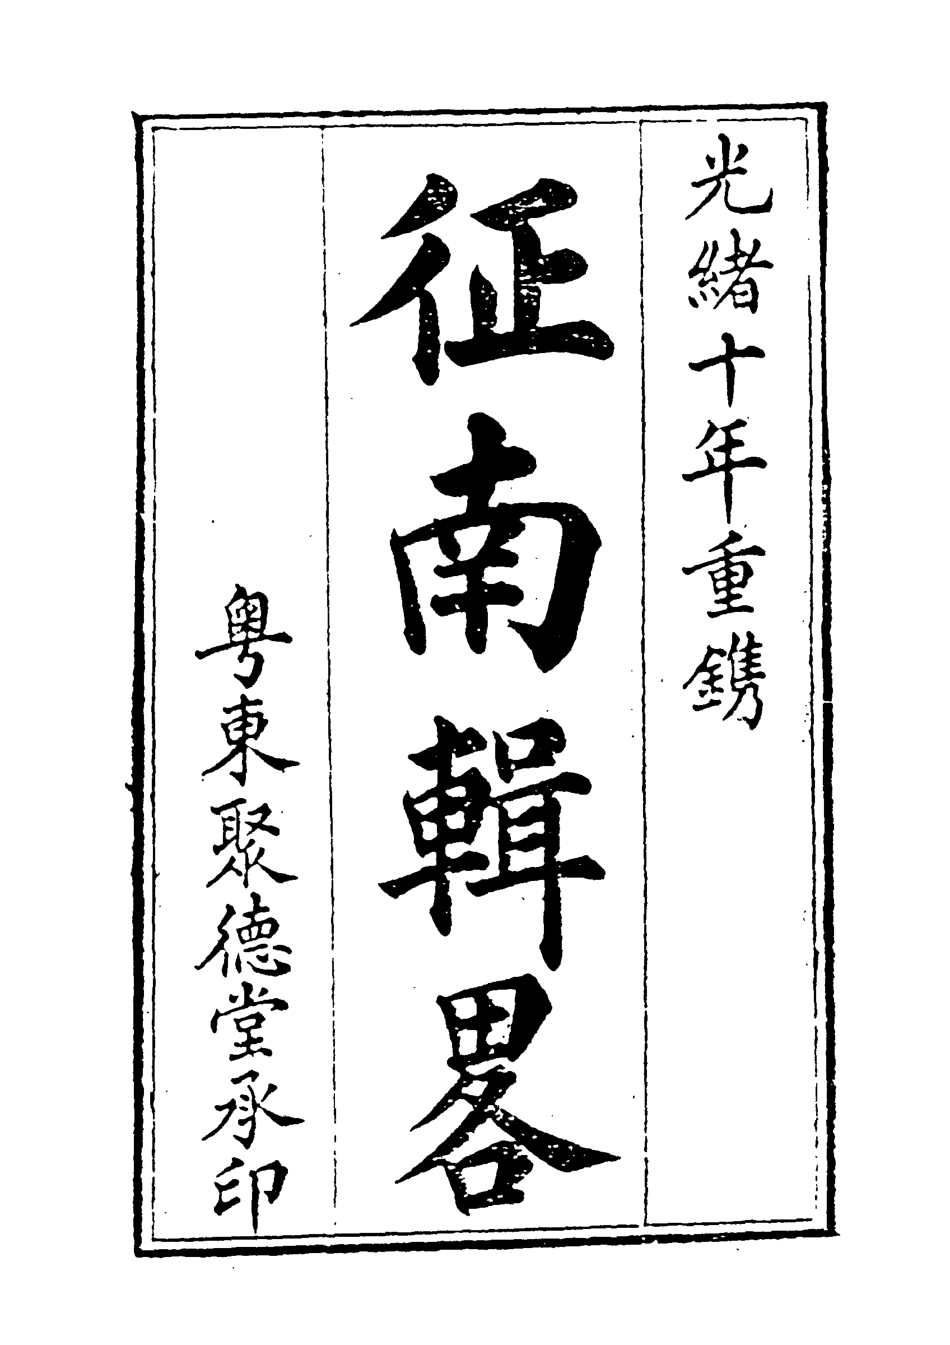 光緒十年重鐫
征南輯畧
粤東聚德堂承印